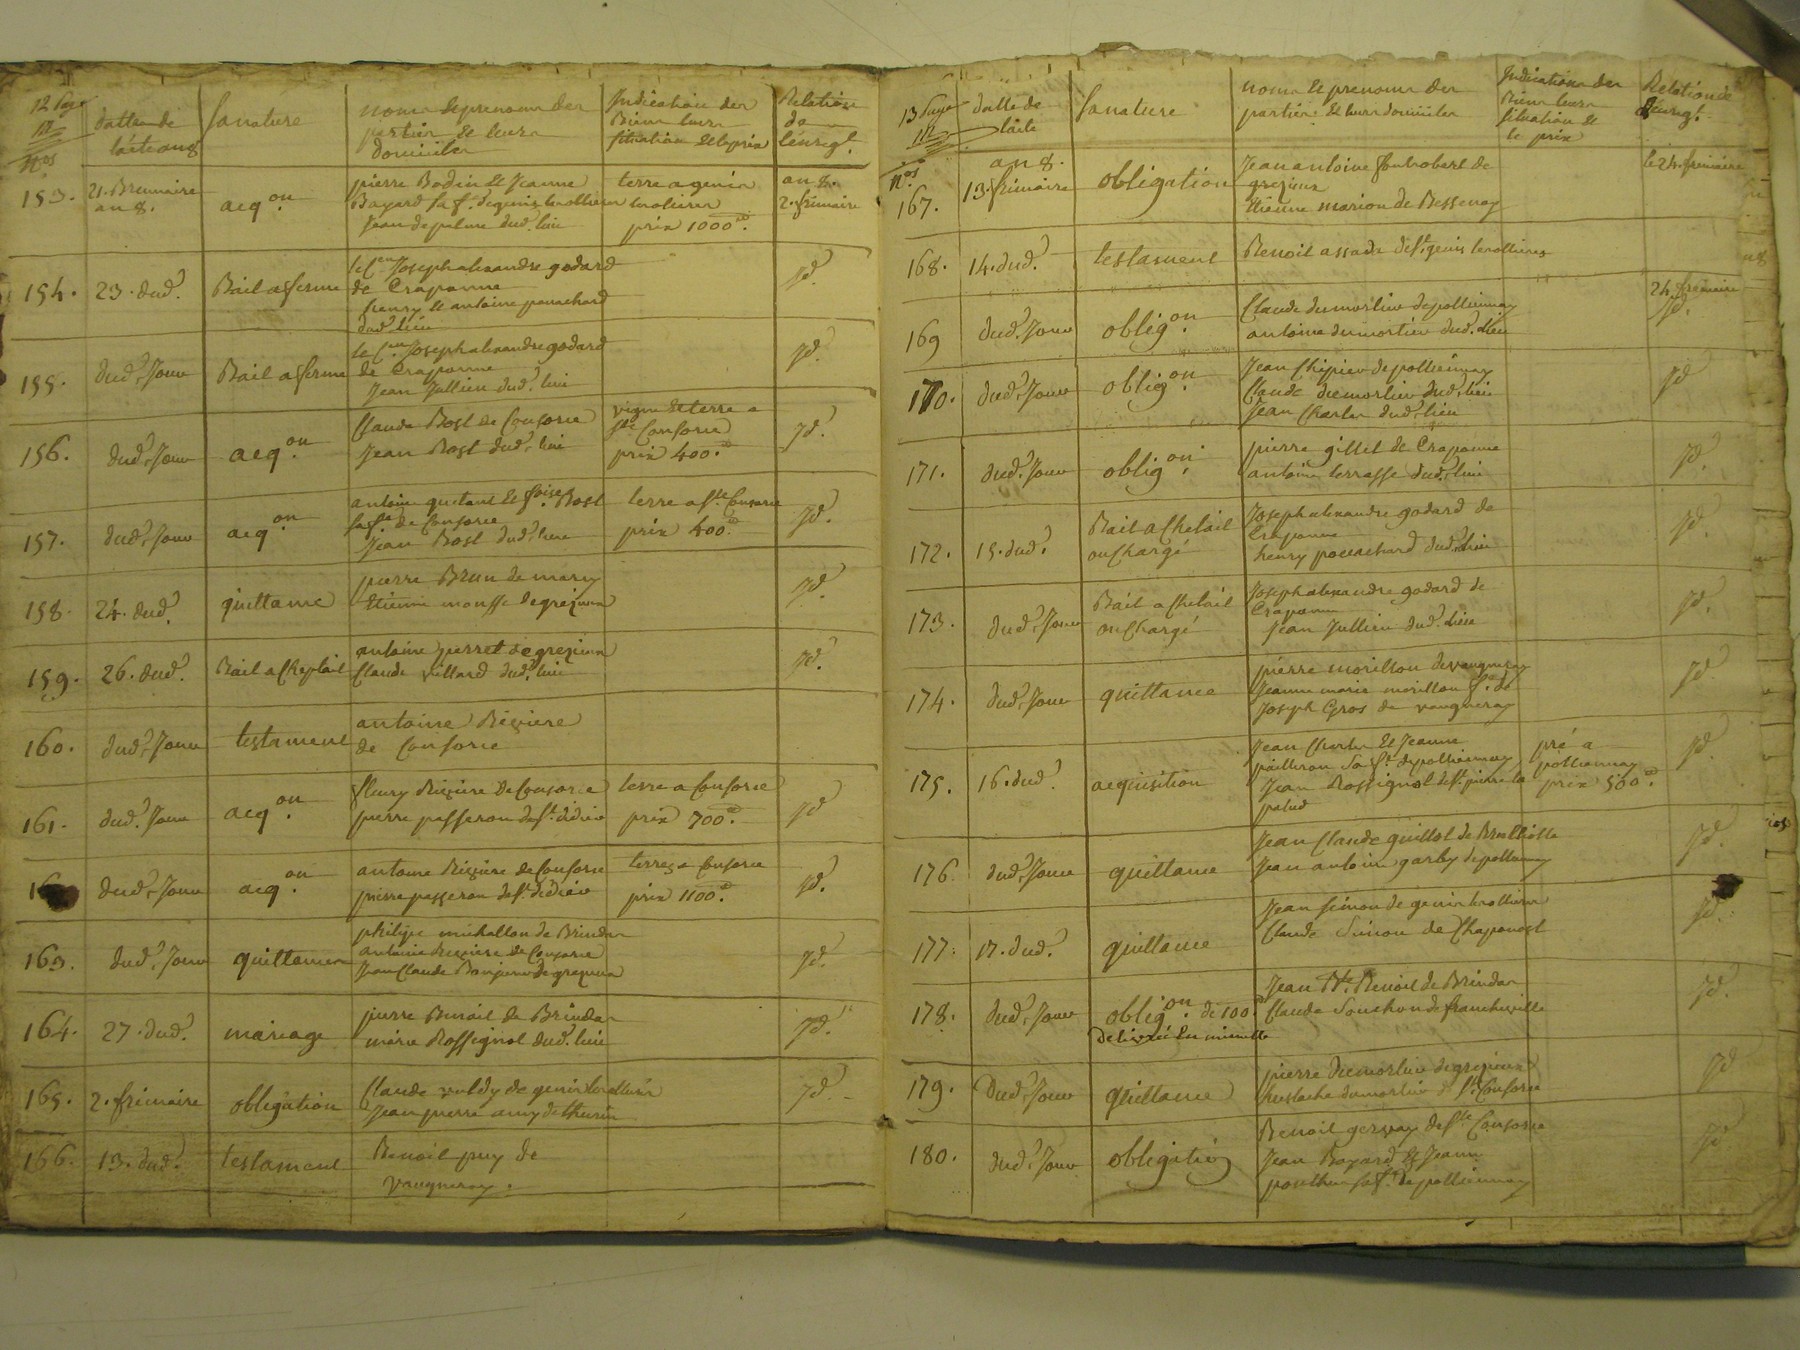 12 page
Nos
dattes de
l'acte an 8
sa nature
noms et prenoms des
parties et leurs
domiciles
Indication des
Biens leurs
situation et le prix
Relation
de
l'enregt.
153. 21. Brumaire
an 8.
acqon.
pierre Bodin et Jeanne
Bayard sa f. de genis les ollieres
Jean depalme dud. lieu
terre a genis
les ollieres
prix 1000.
an 8.
2. frimaire
154. 23. dud.
Bail a ferme
le Cen Joseph alexandre godard
de Craponne
henry et antoine ponchard
dud. lieu
id.
155. dud. Jour
Bail a ferme
le Cen Joseph alexandre godard
de Craponne
Jean Jullien dud. lieu
id.
156. dud. Jour
acqon.
Claude Bost de Consorce
Jean Bost dud. lieu
vigne et terre a
Ste Consorce
prix 400.
id.
157. dud. Jour
acqon.
antoine et foise Bost
sa fe de Consorce
Jean Bost dud. lieu
terre a Ste Consorce
prix 400.
id.
158. 24. dud.
quittance
pierre Brun de marcy
Etienne mousse de grezieu
id.
159. 26. dud.
Bail a Cheptail
antoine perret de grezieu
Claude villard dud. lieu
id.
160. dud. Jour
testament
antoine Riviere
de Consorce
161. dud. Jour
acqon.
fleury Riviere de Consorce
pierre passeron de St. didier
terre a Consorce
prix 700.
id
16 dud. Jour
acqon.
antoine Riviere de Consorce
pierre passeron de St. didier
terres a Consorce
prix 1100.
id.
163. dud. Jour
quittances
philipe michallon de Brindas
antoine Riviere de Consorce
Jean Claude Bonjour de grezieu
id.
164. 27. dud.
mariage
pierre Benoit de Brindas
marie Rossignol dud. lieu
id.
165. 2. frimaire
obligation
Claude vuldy de genis les ollieres
Jean pierre anny de thurin
id.
166. 13. dud.
testament
Benoit puy de
vaugneray.
13 page
Nos
datte de
l'acte
sa nature
noms et prenoms des
parties et leurs domiciles
Indication des
Biens leurs
situation et
le prix
Relation de
l'enregt.
an 8.
167. 13. frimaire
obligation
Jean antoine fontrobert de
grezieu
Etienne marion de Bessenay
le 24. frimaire
168. 14. dud.
testament
Benoit assada de St. genis les ollieres
169 dud. Jour
obligon.
Claude dumortier de pollionnay
antoine dumortier dud. lieu
24. frimaire
id.
170. dud. Jour
obligon.
Jean Chipier de pollionnay
Claude dumortier dud. lieu
Jean Charles dud. lieu
id
171. dud. Jour
obligon.
pierre gillet de Craponne
antoine terrasse dud. lieu
id.
172. 15. dud.
Bail a Chetail
ou Chargé
Joseph alexandre godard de
Craponne
henry ponchard dud. lieu
id.
173. dud. Jour
Bail a Chetail
ou Chargé
Joseph alexandre godard de
Craponne
Jean Jullien dud. lieu
id.
174. dud. Jour
quittance
pierre morillon de vaugneray
Jeanne marie morillon f. de
Joseph Gros de vaugneray
id
175. 16. dud.
acquisition
Jean Charles et Jeanne
sa f. de pollionnay
Jean Rossignol de St. pierre la
palud
pré a
pollionnay
prix 500.
id
176. dud. Jour
quittance
Jean Claude guillot de Brulliolle
Jean antoine garby de pollionnay
id.
177. 17. dud.
quittance
Jean simon de genis les ollieres
Claude Simon de Chaponost
id.
178. dud. Jour
obligon. de 100
delivré en minutte
Jean Bte. Benoit de Brindas
Claude Souchon de francheville
id.
179. Dud. Jour
quittance
pierre dumortier de grezieux
Eustache dumortier de Ste Consorce
id
180. dud. Jour
obligation
Benoit gervay de Ste Consorce
Jean Bayard et Jeanne
ponthus sa f. de pollionnay
id.